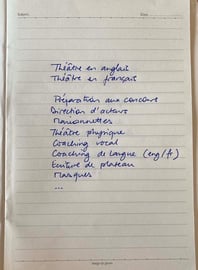 Théâtre en anglais
Théâtre en français
Préparation aux concours
Direction d'acteurs
Marionnettes
Théâtre physique
Coaching vocal
Coaching de langue (eng/fr)
Ecriture de plateau
Masques
...